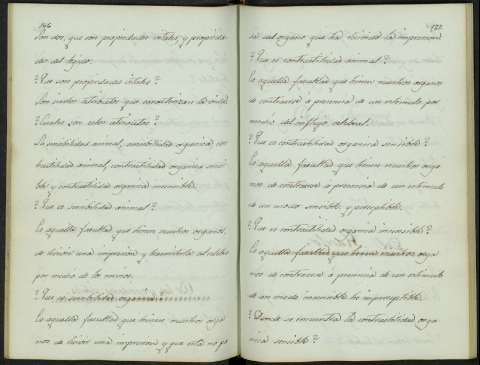 176
Son dos, que son propiedades vitales, y propieda-
des del tejido.
? Que son propiedades vitales?
Son ciertos atributos que caracterizan la vida.
? Cuales son estos atributos?
La sensibilidad animal, sensibilidad organica, con-
tractilidad animal, contractilidad organica sensi-
ble, y contractilidad organica insensible.
? Que es sensibilidad animal?
Es aquella facultad que tienen nuestros organos,
de recibir una impresion y transmitirla al celebro
por medio de los nervios.
? Que es sensibilidad organica?
Es aquella facultad que tienen nuestros orga-
nos de recibir una impresion y que esta no pa-
177
se del organo que ha recibido la impresion.
? Que es contractilidad animal?
Es aquella facultad que tienen nuestros organos
de contraerse á presencia de un estimulo por
medio del influjo celebral.
? Que es contractilidad organica sensible?
Es aquella facultad que tienen nuestros orga-
nos de contraerse a presencia de un estimulo
de un modo sensible y perceptible.
? Que es contractilidad organica insensible?
Es aquella facultad que tienen nuestros orga-
nos de contraerse á presencia de un estimulo
de un modo insensible é imperceptible.
? Donde se encuentra la contractilidad orga-
nica sensible?